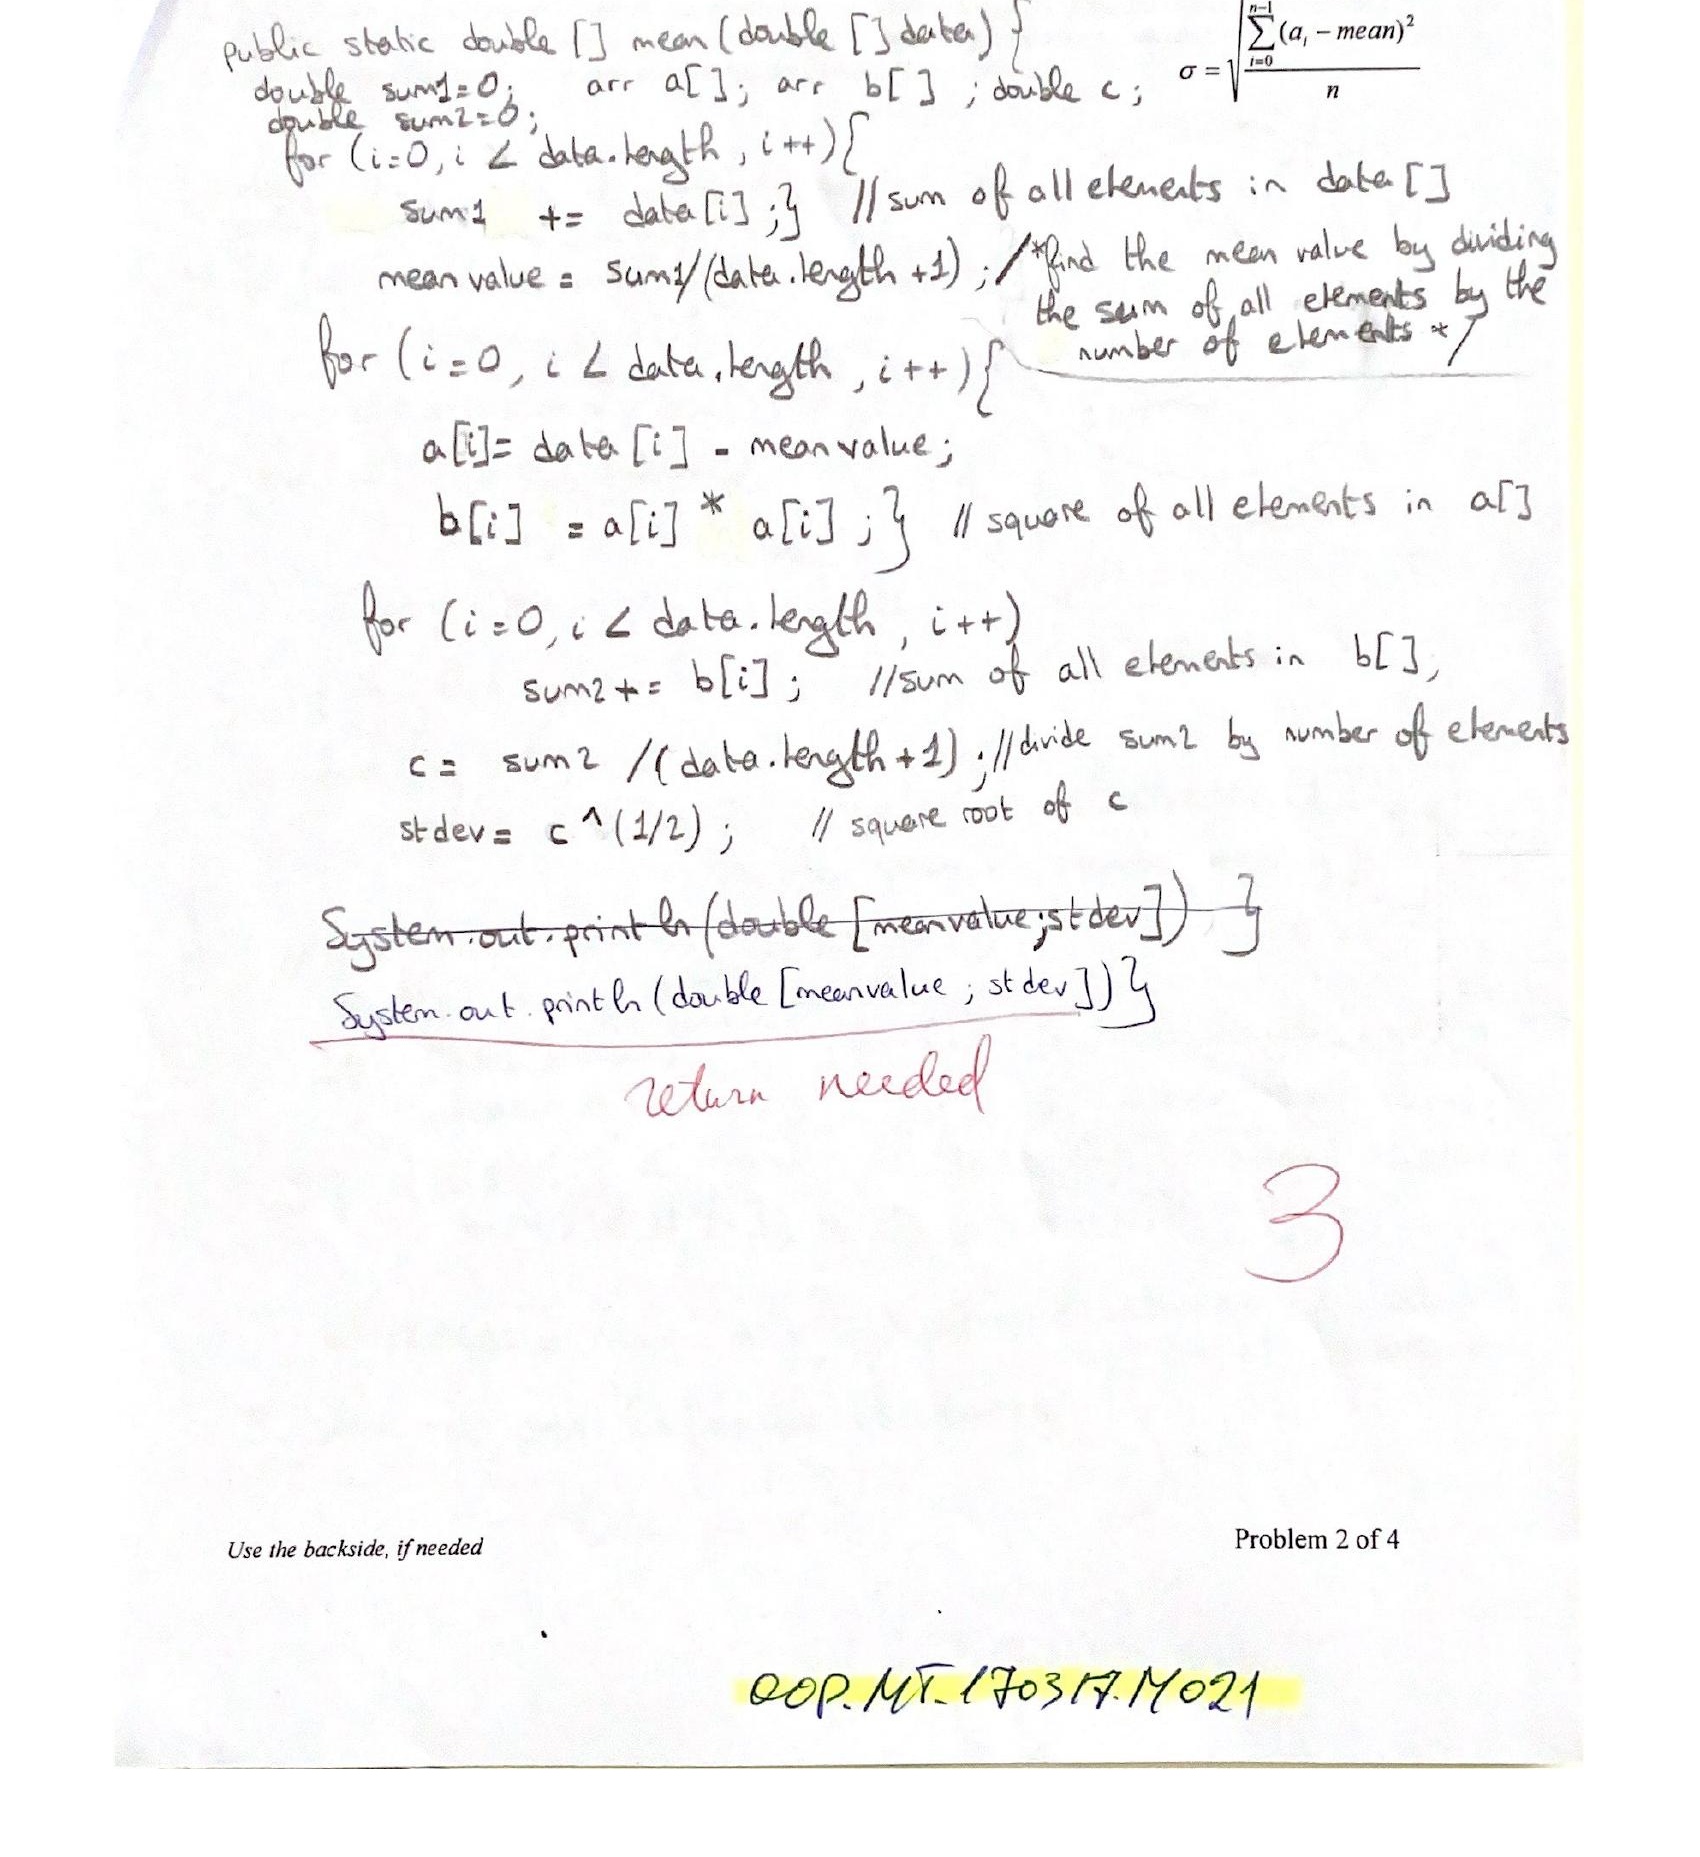 public static double [] mean (double [] data) {
σ = √ n-1 ∑ i=0 (aᵢ − mean)² / n
double sum1=0; arr a[]; arr b[] ; double c ;
double sum2=0;
for (i=0, i < data.length , i++){
sum1 += data[i] ;} // sum of all elements in data []
mean value = sum1/(data.length +1) ; /*find the mean value by dividing
the sum of all elements by the
number of elements */
for (i=0, i < data.length , i++){
a[i]= data [i] - meanvalue;
b[i] = a[i] * a[i] ;} // square of all elements in a[]
for (i=0, i < data.length , i++)
sum2 += b[i] ; //sum of all elements in b[],
c = sum2 /(data.length +1) ; //divide sum2 by number of elements
stdev= c^(1/2) ; // square root of c
System.out.println (double [meanvalue;stdev]) }
System.out.println (double [meanvalue ; stdev])}
return needed
3
Use the backside, if needed
Problem 2 of 4
OOP.MT.170317.M021